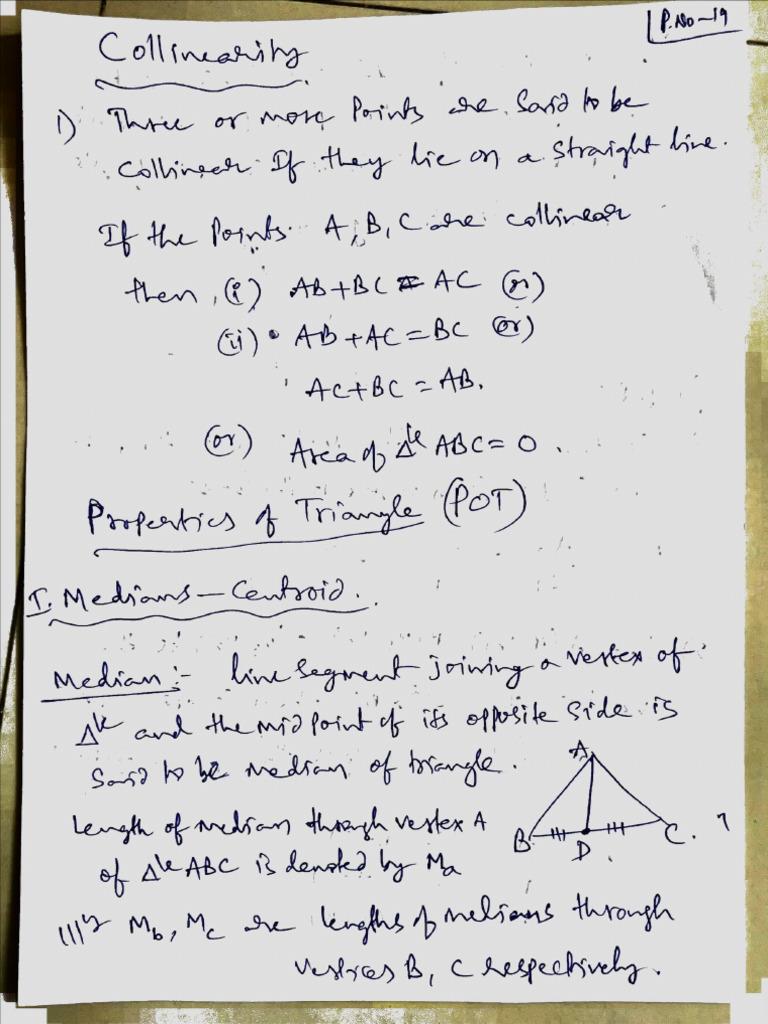 P.No-19
Collinearity
1) Three or more Points are Said to be
Collinear If they lie on a straight line.
If the Points A, B, C are collinear
then, (i) AB+BC = AC (or)
(ii) • AB+AC=BC (or)
AC+BC = AB.
(or) Area of Δle ABC = 0.
Properties of Triangle (POT)
I. Medians - Centroid.
Median :- line segment joining a vertex of
Δle and the mid point of its opposite side is
Said to be median of triangle.
A
Length of median through vertex A
B D C.
of Δle ABC is denoted by Ma
|||ly Mb, Mc are lengths of medians through
vertices B, C respectively.